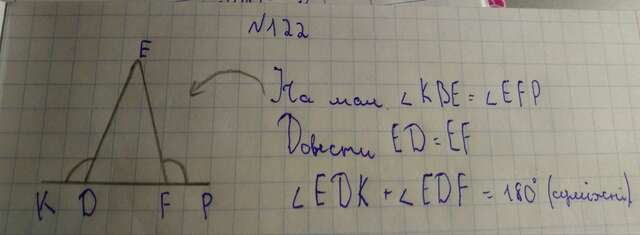 №122
E
На мал. ∠KBE = ∠EFP
Довести ED = EF
∠EDK + ∠EDF = 180° (суміжні)
K D F P